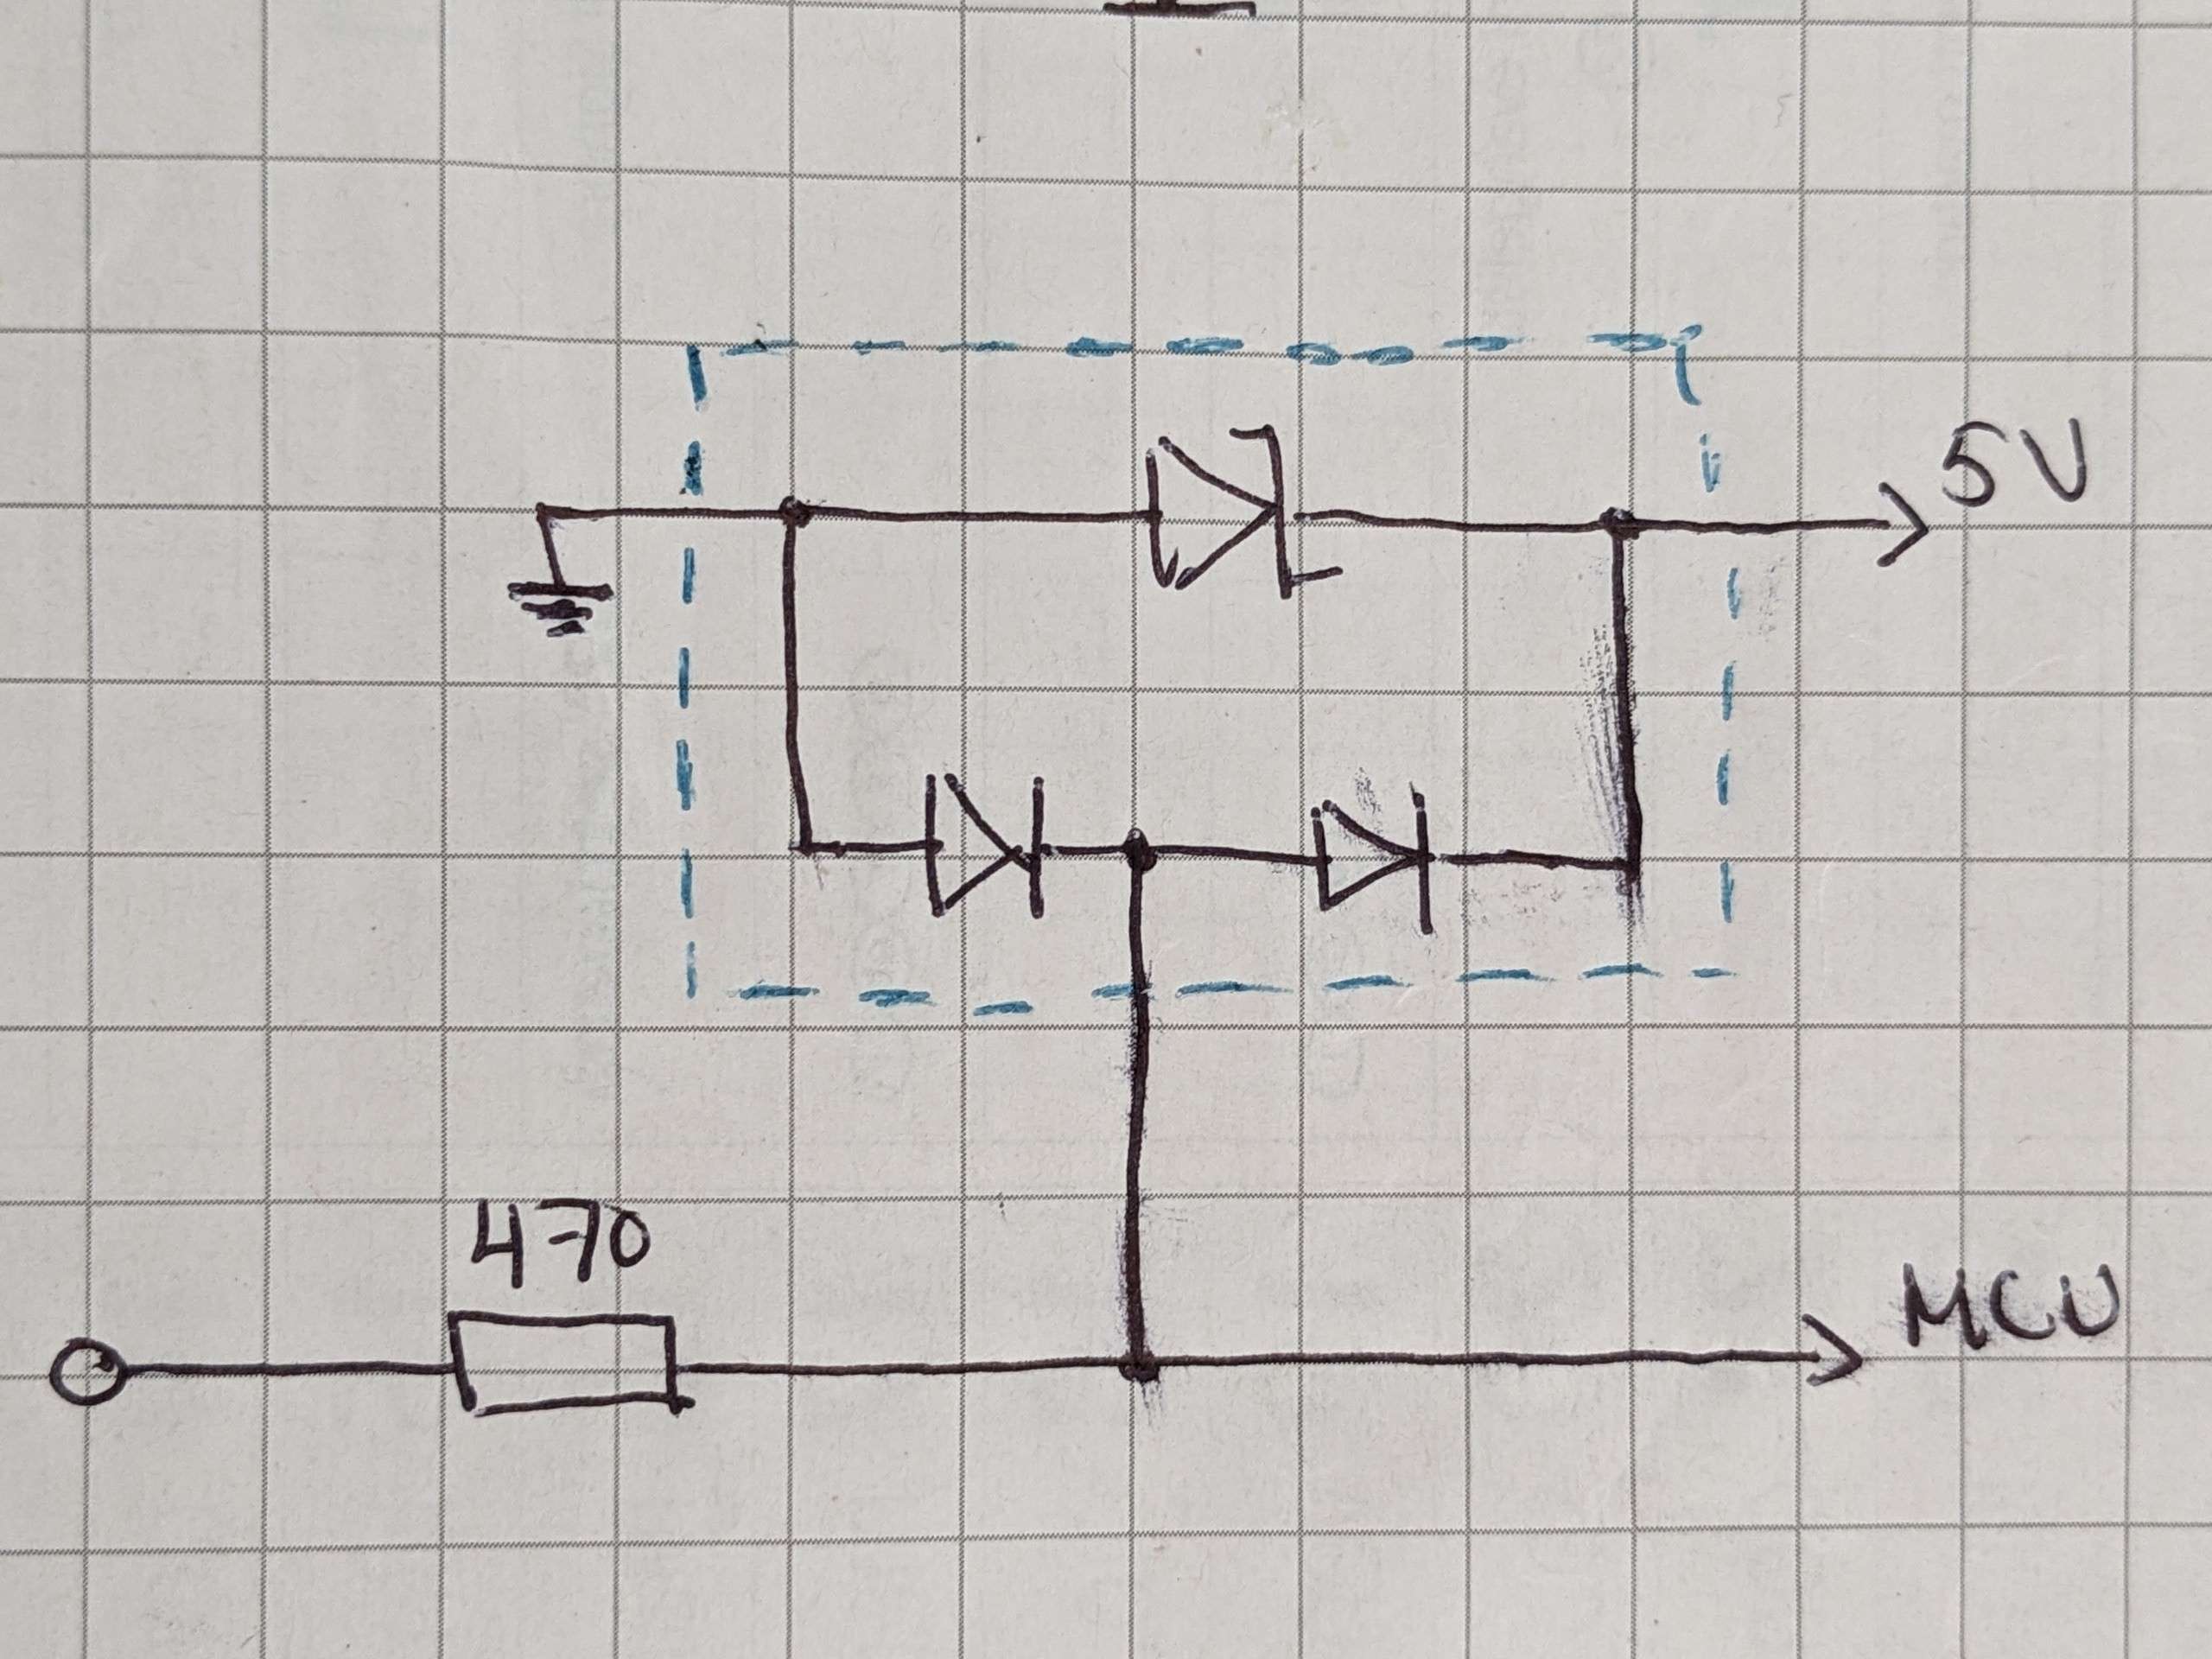 5V
470
MCU